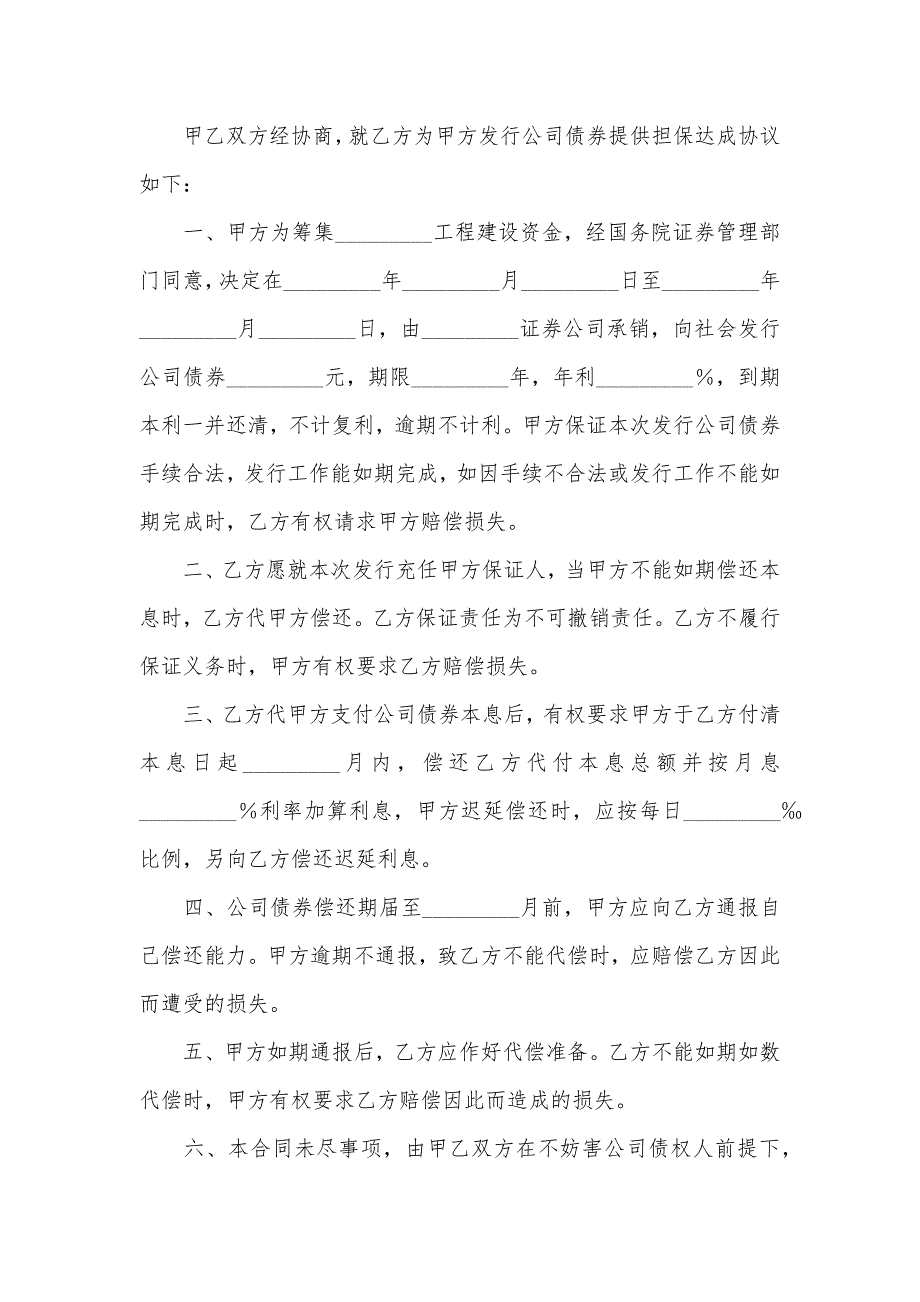 甲乙双方经协商，就乙方为甲方发行公司债券提供担保达成协议
如下：
一、甲方为筹集_________工程建设资金，经国务院证券管理部
门同意，决定在_________年_________月_________日至_________年
_________月_________日，由_________证券公司承销，向社会发行
公司债券_________元，期限_________年，年利_________％，到期
本利一并还清，不计复利，逾期不计利。甲方保证本次发行公司债券
手续合法，发行工作能如期完成，如因手续不合法或发行工作不能如
期完成时，乙方有权请求甲方赔偿损失。
二、乙方愿就本次发行充任甲方保证人，当甲方不能如期偿还本
息时，乙方代甲方偿还。乙方保证责任为不可撤销责任。乙方不履行
保证义务时，甲方有权要求乙方赔偿损失。
三、乙方代甲方支付公司债券本息后，有权要求甲方于乙方付清
本息日起_________月内，偿还乙方代付本息总额并按月息
_________％利率加算利息，甲方迟延偿还时，应按每日_________‰
比例，另向乙方偿还迟延利息。
四、公司债券偿还期届至_________月前，甲方应向乙方通报自
己偿还能力。甲方逾期不通报，致乙方不能代偿时，应赔偿乙方因此
而遭受的损失。
五、甲方如期通报后，乙方应作好代偿准备。乙方不能如期如数
代偿时，甲方有权要求乙方赔偿因此而造成的损失。
六、本合同未尽事项，由甲乙双方在不妨害公司债权人前提下，